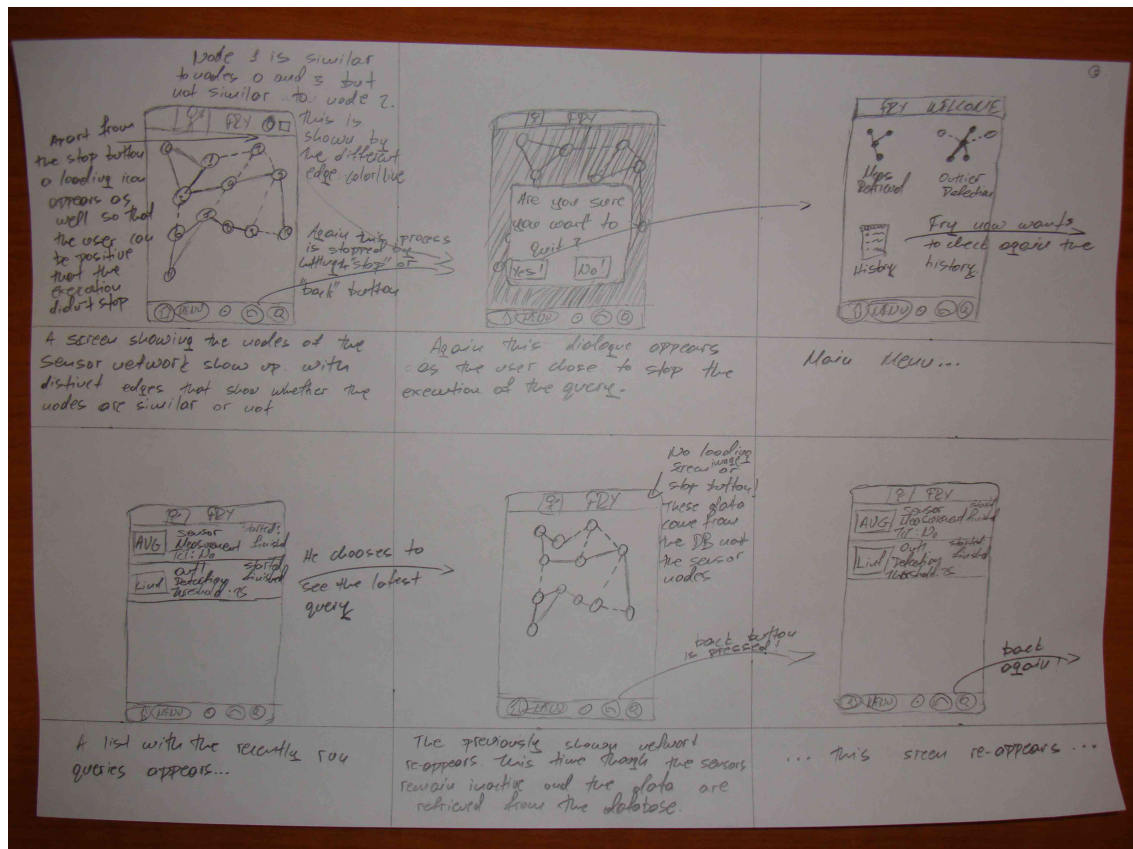 Node 1 is similar
to nodes 0 and 3 but
not similar to node 2.
this is
shown by
the different
edge color/line
Apart from
the stop button
a loading icon
appears as
well so that
the user can
be positive
that the
execution
didn't stop
FRY
Again this process
is stopped by
hitting "stop" or
"back" button
MENU
A screen showing the nodes of the
sensor network show up with
distinct edges that show whether the
nodes are similar or not
FRY
Are you sure
you want to
quit?
Yes!
No!
MENU
Again this dialogue appears
as the user chose to stop the
execution of the query.
FRY WELCOME
Outlier
Detection
History
Fry now wants
to check again the
history.
MENU
Main Menu...
FRY
AVG
Sensor
Measurement
Tct: No
started:
finished
Outl
Detection
threshold: 75
started
finished
He chooses to
see the latest
query
MENU
A list with the recently run
queries appears...
FRY
No loading
screen image or
stop button!
These data
come from
the DB not
the sensor
nodes
back button
is pressed!
MENU
The previously shown network
re-appears. this time though the sensors
remain inactive and the data are
retrieved from the database.
FRY
AVG
Sensor
Measurement
Tct: No
started
finished
Outl
Detection
threshold: 75
started
finished
back
again!
MENU
... this sreen re-appears ...